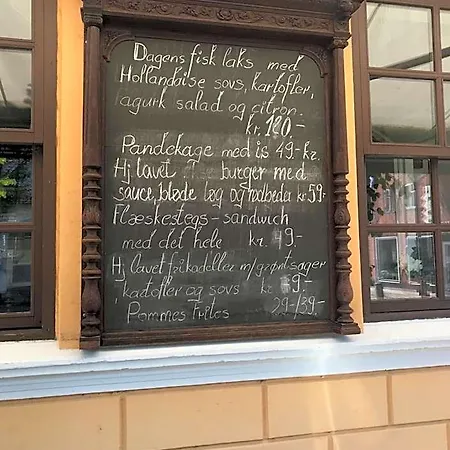 Dagens fisk laks med
Hollandaise sovs, kartofler,
agurk salad og citron.
kr. 120,-
Pandekage med is 49,- kr.
Hj lavet burger med
sauce, bløde løg og rødbeda kr 59,-
Flæskestegs-sandwich
med det hele kr. 49.-
Hj lavet frikadeller m/grøntsager
, kartofler og sovs kr 59,-
Pommes Frites 29-/39,-